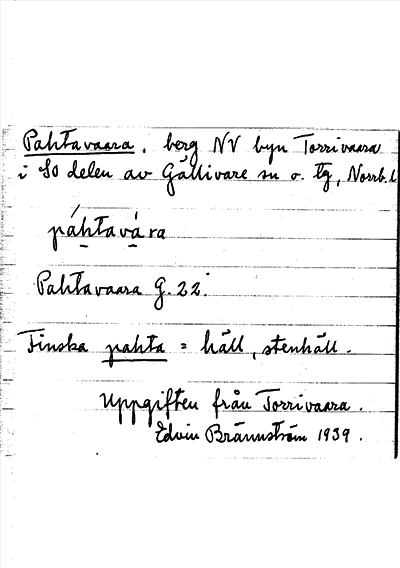 Pahtavaara, berg NV byn Torrivaara
i SO delen av Gällivare sn o. tg, Norrb. l
páhtavára
Pahtavaara G. 22.
Finska pahta = häll, stenhäll.
Uppgiften från Torrivaara.
Edvin Brännström 1939.